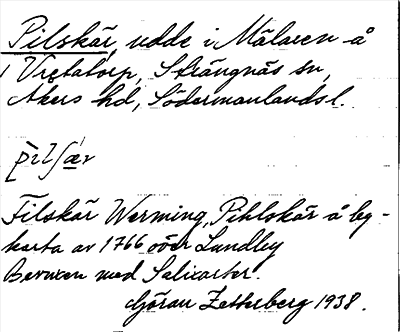 Pilskär, udde i Mälaren å
Vretatorp, Strängnäs sn,
Åkers hd, Södermanlandsl.
pìlʃæ̀r
Filskär Werming, Pihlskär å bg-
karta av 1766 över Lundby
Bevuxen med Salixarter.
Göran Zetterberg 1938.